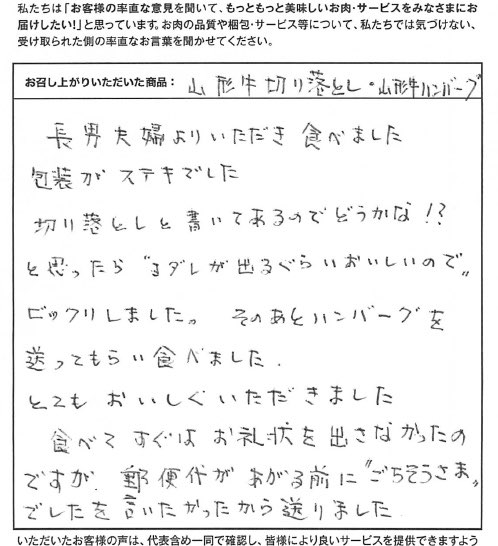 私たちは「お客様の率直な意見を聞いて、もっともっと美味しいお肉・サービスをみなさまにお
届けしたい！」と思っています。お肉の品質や梱包・サービス等について、私たちでは気づけない、
受け取られた側の率直なお言葉を聞かせてください。
お召し上がりいただいた商品： 山形牛切り落とし・山形牛ハンバーグ
長男夫婦よりいただき食べました
包装がステキでした
切り落としと書いてあるのでどうかな!?
と思ったら〝ヨダレが出るぐらいおいしいので〟
ビックリしました。 そのあとハンバーグを
送ってもらい食べました.
とてもおいしくいただきました
食べてすぐはお礼状を出さなかったの
ですが、郵便代があがる前に〝ごちそうさま〟
でしたを言いたかったから送りました
いただいたお客様の声は、代表含め一同で確認し、皆様により良いサービスを提供できますよう